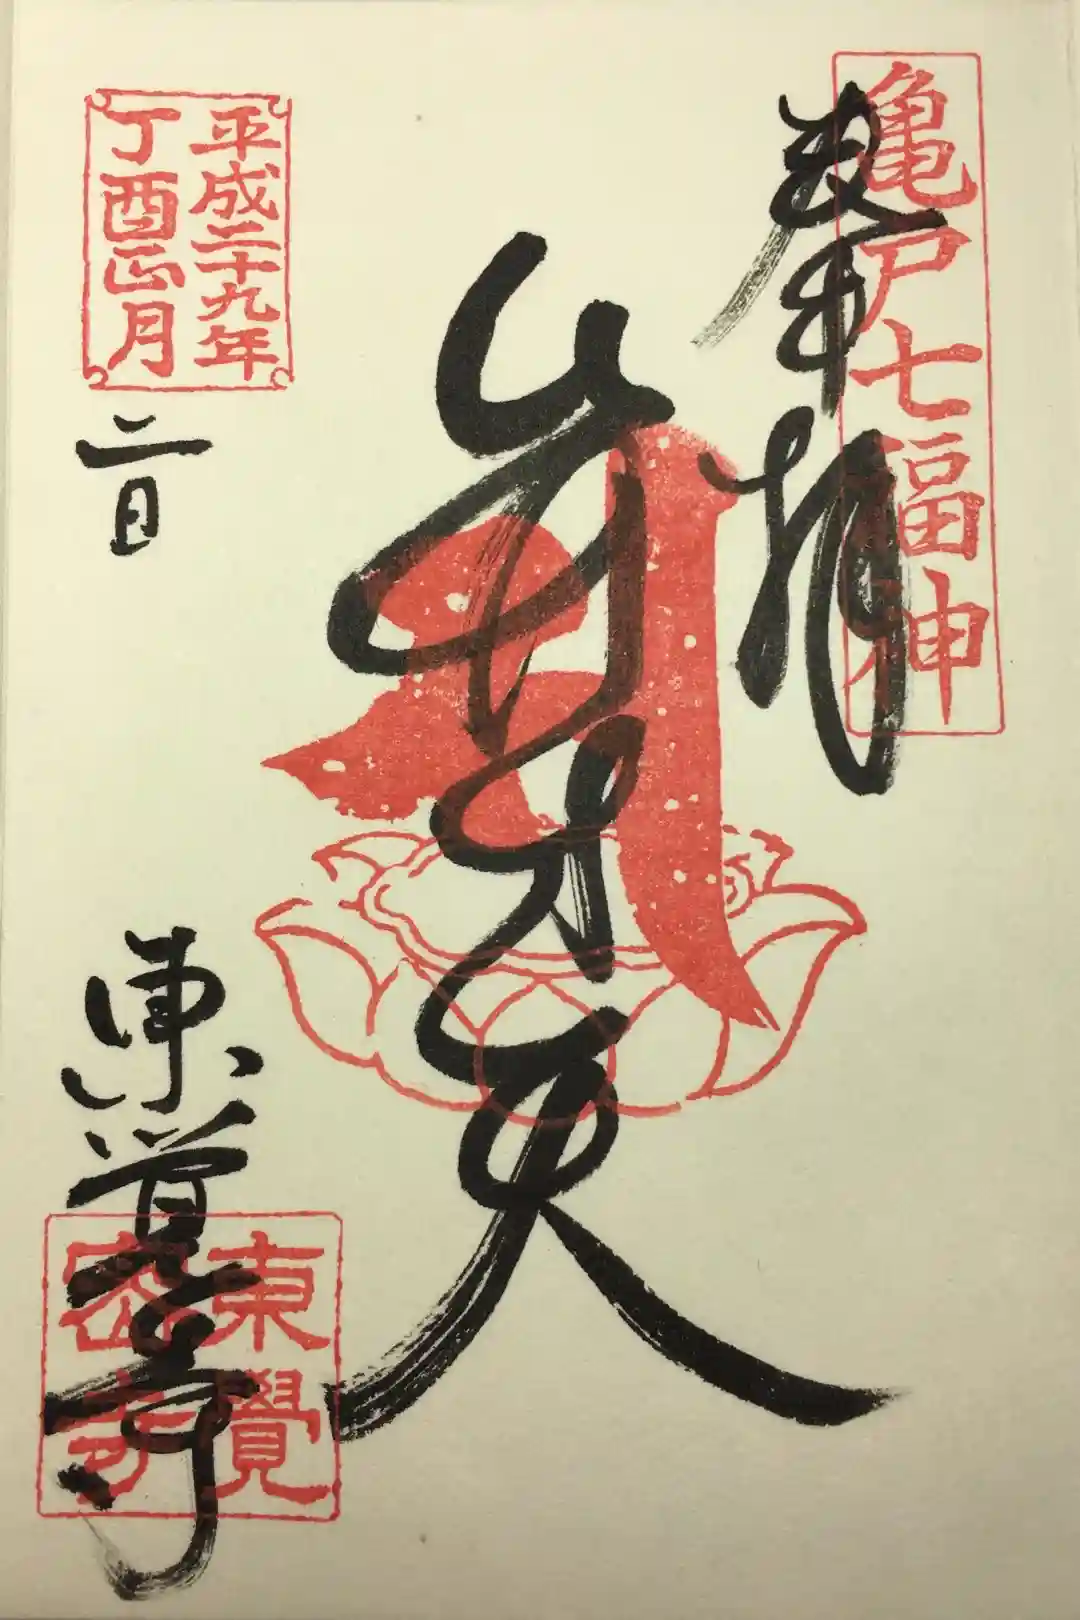 亀戸七福神
奉拝
弁才天
平成二十九年
丁酉正月
二日
東覚寺
東覺
密寺